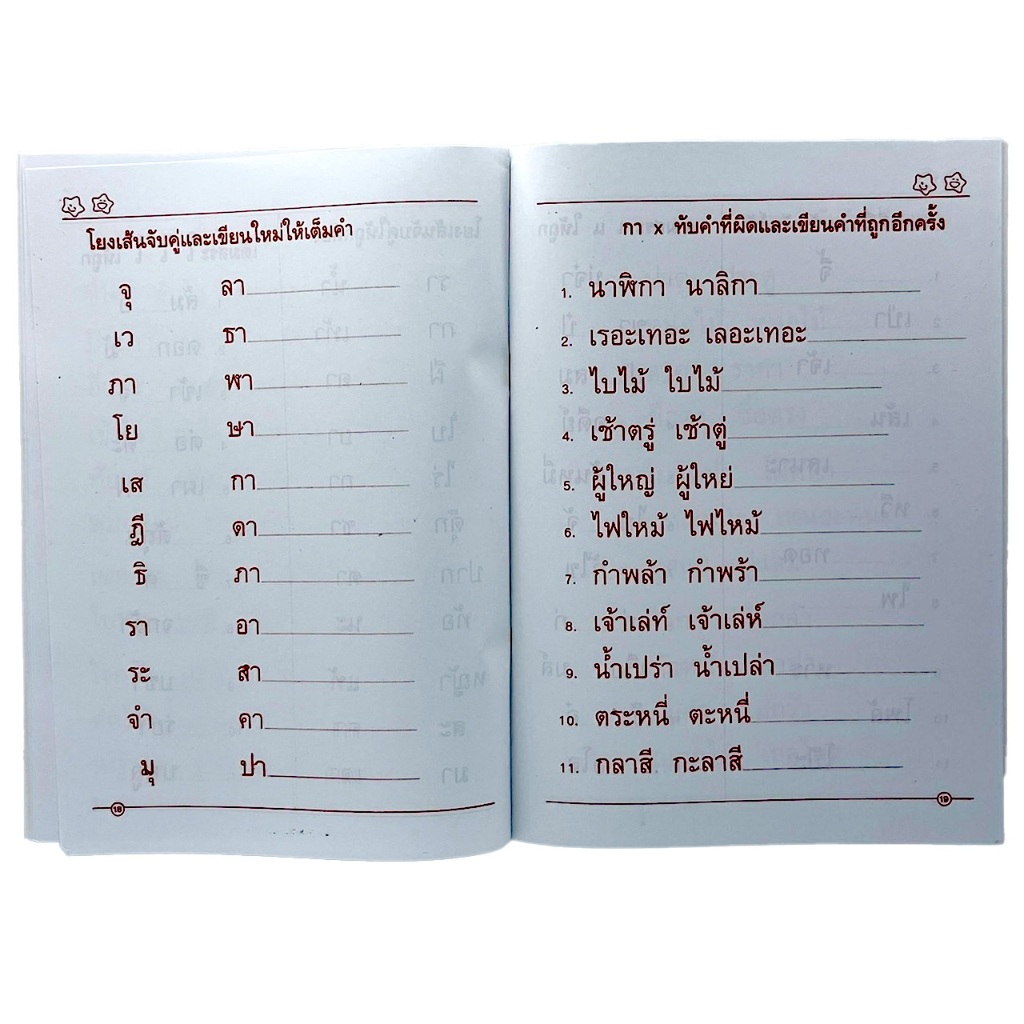 โยงเส้นจับคู่และเขียนใหม่ให้เต็มคำ
จุ ลา
เว ธา
ภา ฬา
โย ษา
เส กา
ฎี ดา
ธิ ภา
รา อา
ระ สา
จำ คา
มุ ปา
18
กา x ทับคำที่ผิดและเขียนคำที่ถูกอีกครั้ง
1. นาฬิกา นาลิกา
2. เรอะเทอะ เลอะเทอะ
3. ไบไม้ ใบไม้
4. เช้าตรู่ เช้าตู่
5. ผู้ใหญ่ ผู้ใหย่
6. ไฟใหม้ ไฟไหม้
7. กำพล้า กำพร้า
8. เจ้าเล่ท์ เจ้าเล่ห์
9. น้ำเปร่า น้ำเปล่า
10. ตระหนี่ ตะหนี่
11. กลาสี กะลาสี
19